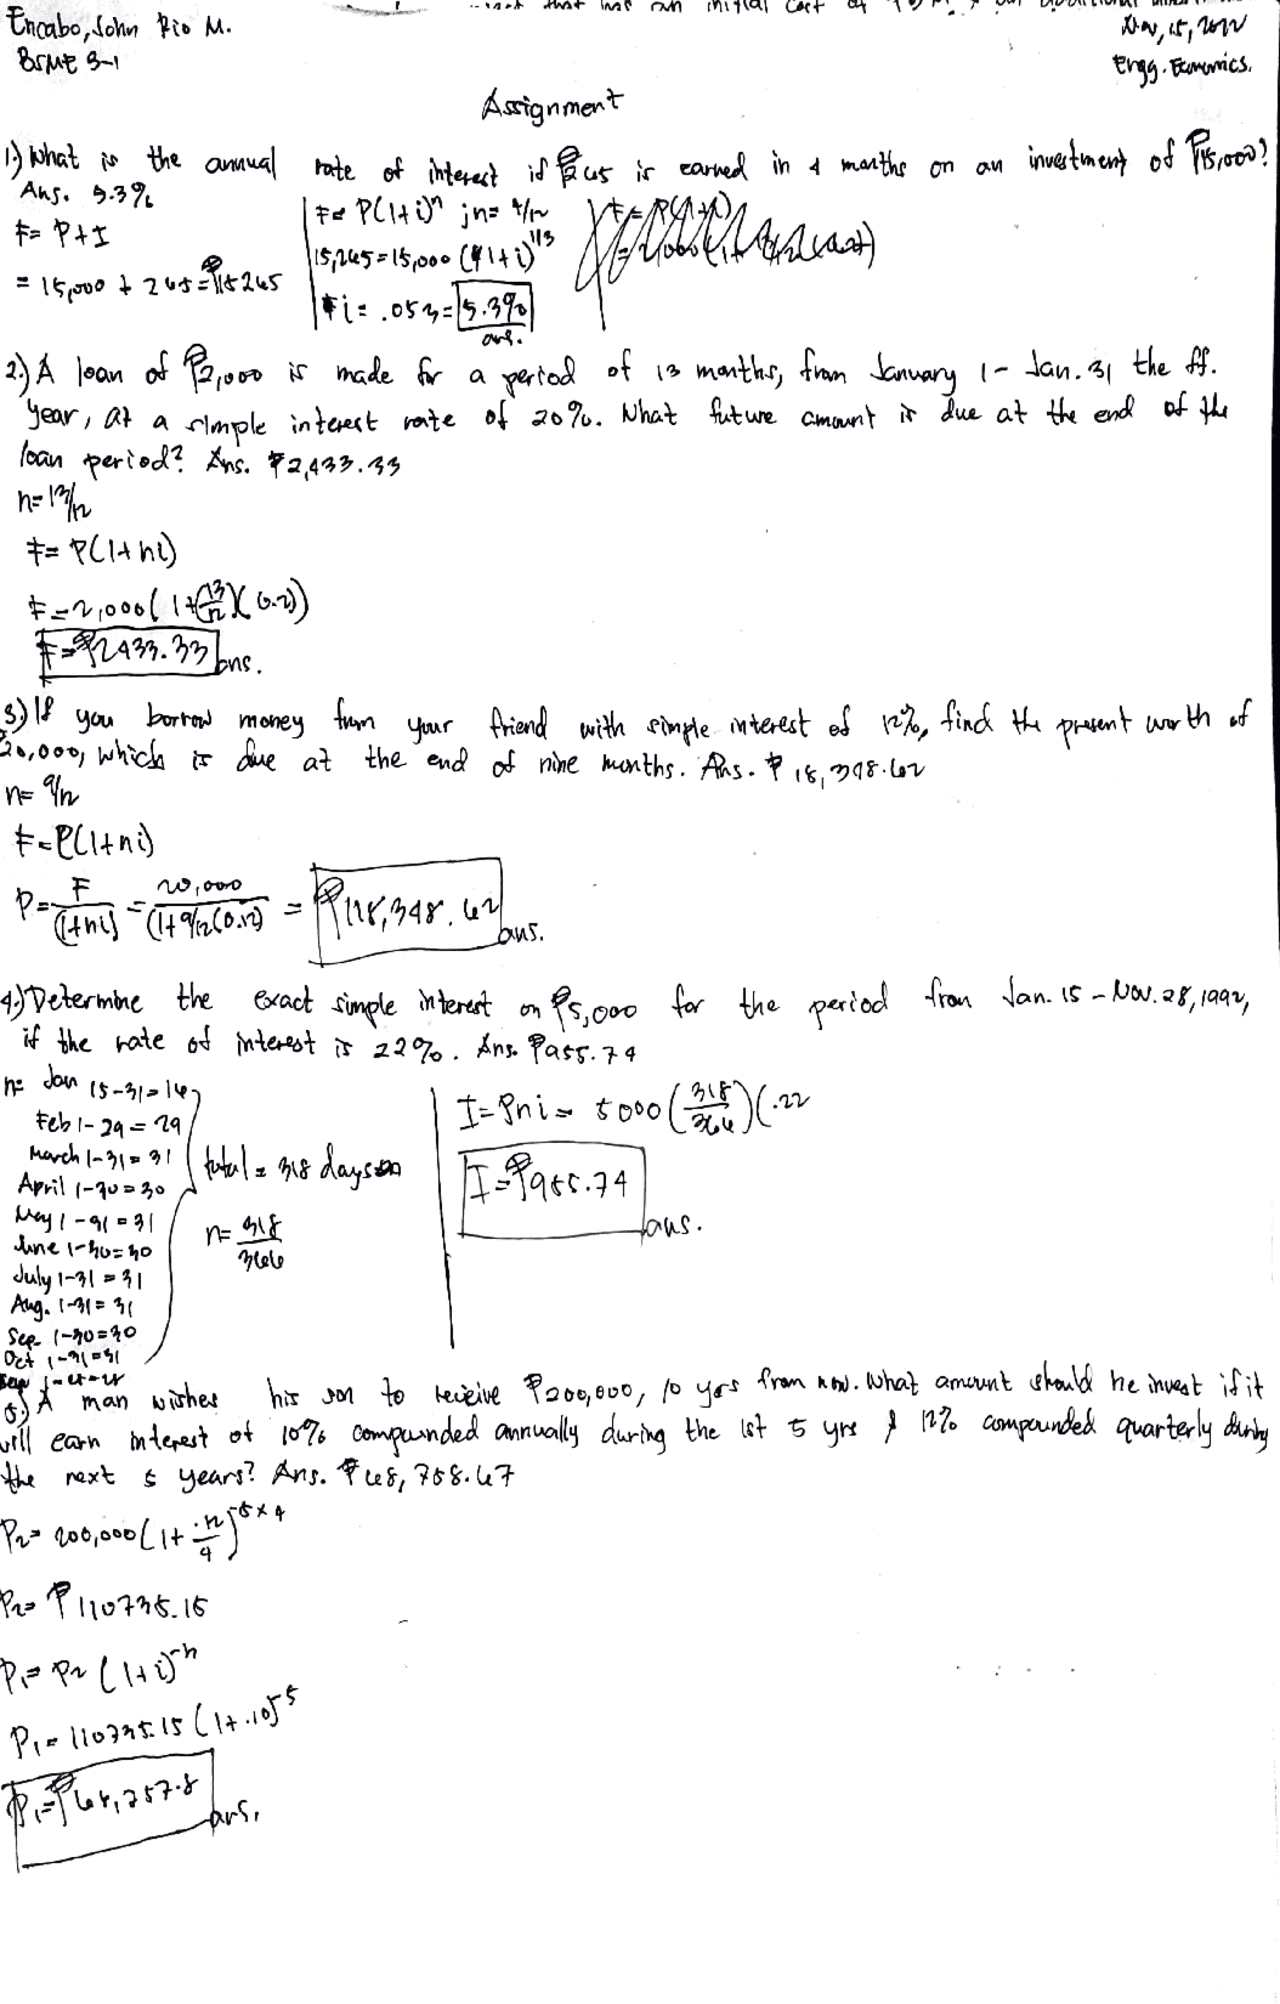 Encabo, John Rio M.
Nov, 15, 2022
BSME 3-1
Engg. Economics.
Assignment
1.) What is the annual rate of interest if ₱265 is earned in 4 months on an investment of ₱15,000?
Ans. 5.3%
F= P+I
= 15,000 + 265 = ₱15265
F= P(1+i)ⁿ ; n= 4/12
15,265=15,000 (1+i)^1/3
i= .053= 5.3%
ans.
2.) A loan of ₱2,000 is made for a period of 13 months, from January 1 - Jan. 31 the ff.
year, at a simple interest rate of 20%. What future amount is due at the end of the
loan period? Ans. ₱2,433.33
n= 13/12
F= P(1+ni)
F=2,000(1+(13/12)(0.2))
F=₱2433.33 ans.
3.) If you borrow money from your friend with simple interest of 12%, find the present worth of
₱20,000, which is due at the end of nine months. Ans. ₱ 18,348.62
n= 9/12
F=P(1+ni)
P= F/(1+ni) = 20,000/(1+9/12(0.12) = ₱118,348.62 ans.
4.) Determine the exact simple interest on ₱5,000 for the period from Jan. 15 - Nov. 28, 1992,
if the rate of interest is 22%. Ans. ₱955.74
n= Jan 15-31=16
Feb 1-29=29
March 1-31=31
April 1-30=30
May 1-31=31
June 1-30=30
July 1-31=31
Aug. 1-31=31
Sep. 1-30=30
Oct 1-31=31
total = 318 days
n= 318/366
I=Pni= 5000(318/366)(.22
I=₱955.74
ans.
5.) A man wishes his son to receive ₱200,000, 10 yrs from now. What amount should he invest if it
will earn interest of 10% compounded annually during the 1st 5 yrs & 12% compounded quarterly during
the next 5 years? Ans. ₱68,758.67
P2= 200,000(1+ .12/4)^-5x4
P2= ₱110735.15
P1= P2 (1+i)^-n
P1= 110735.15 (1+.10)^-5
P1=₱68,757.8 ans.